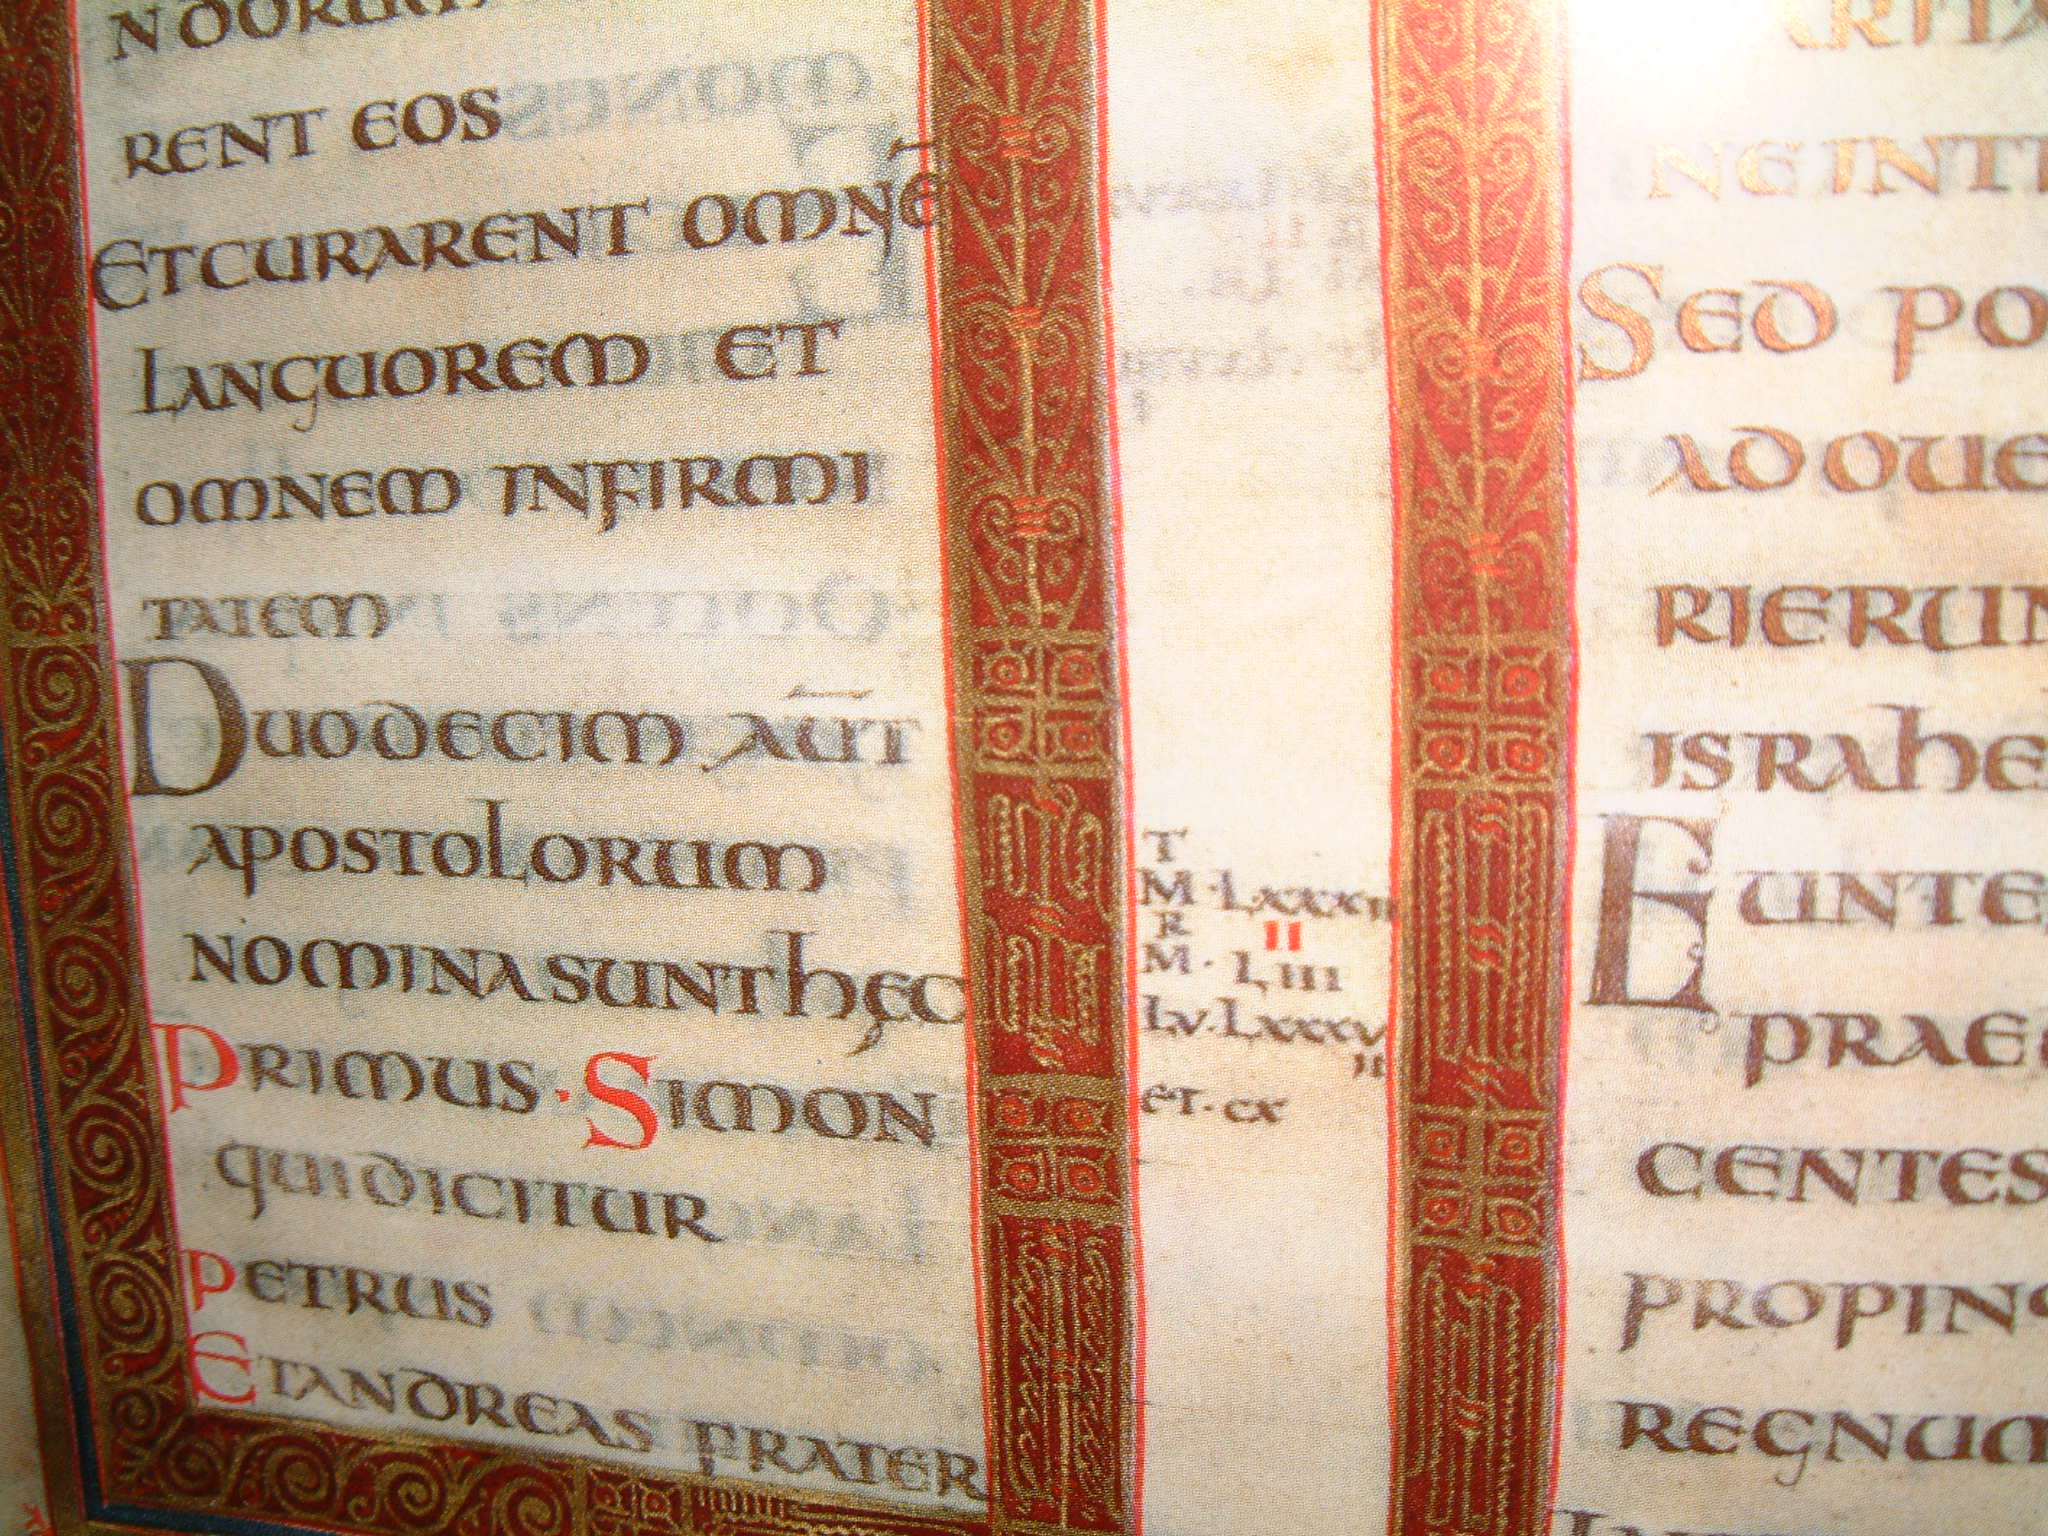 RENT EOS
ETCURARENT OMNE̅
LANGUOREM ET
OMNEM INFIRMI
TATEM
DUODECIM AU̅T
APOSTOLORUM
NOMINA SUNT HĘC
PRIMUS · SIMON
QUI DICITUR
PETRUS
ET ANDREAS FRATER
T
M · LXXXII
R II
M · LIII
LV · LXXXV
II
ET · CX
NE INT
SED PO
AD OUE
RIERUN
ISRAHE
EUNTE
PRAE
CENTES
PROPINQ
REGNUM